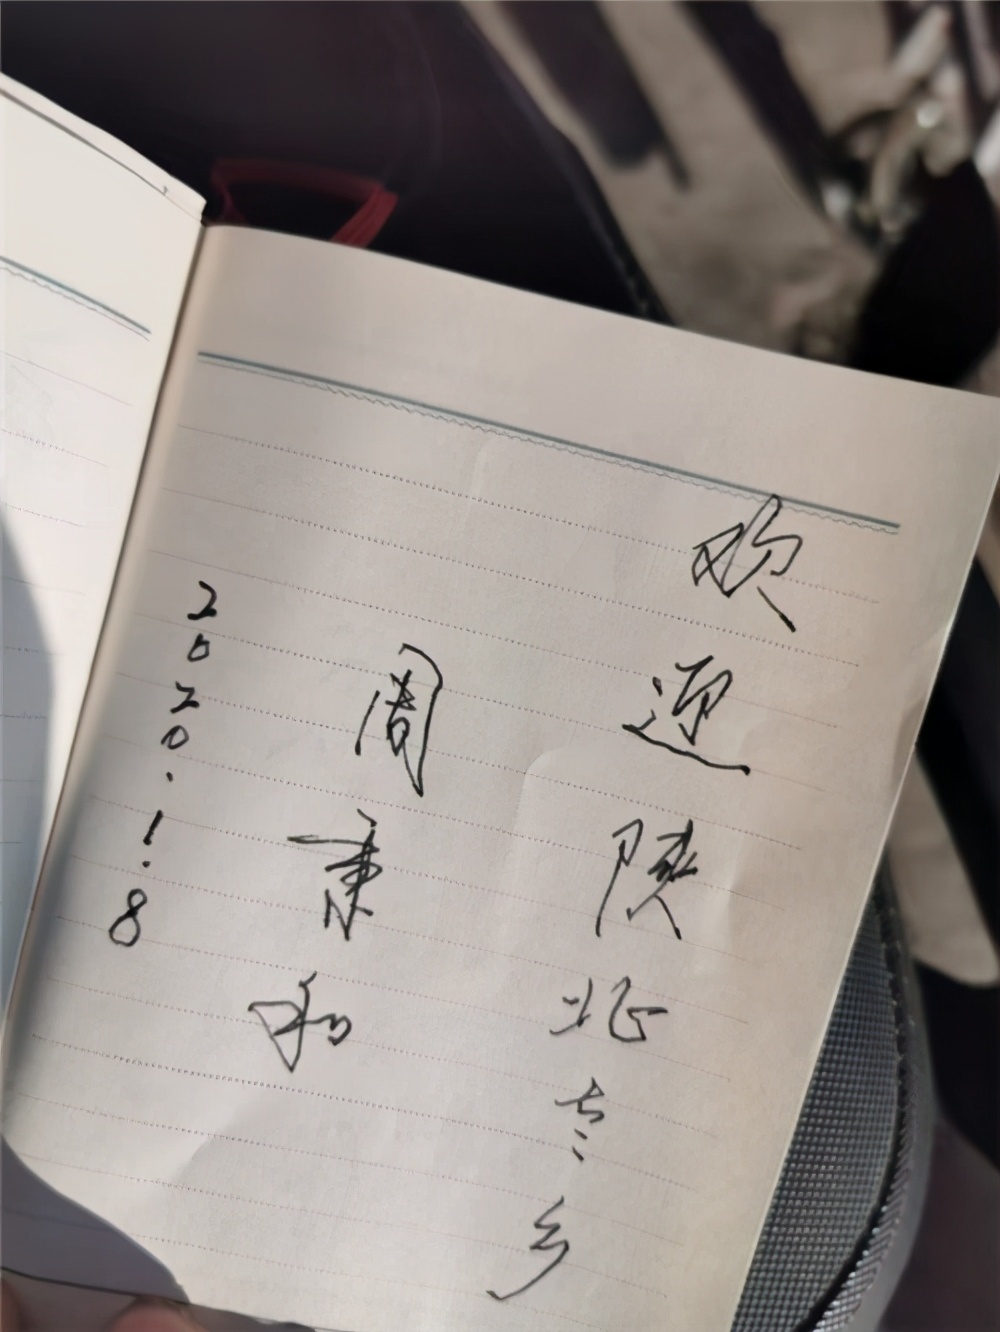 欢迎陕北老乡
周秉和
2020.1.8